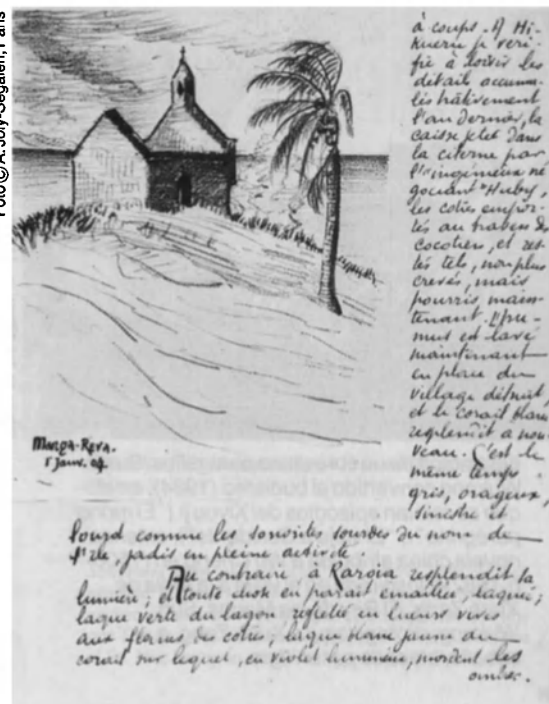 Foto © A. Joly-Segalen, Paris
à coups. A Hi-
kueru je veri-
fie à loisir les
détails accumu-
lés hâtivement
l'an dernier, la
caisse jetée dans
la citerne par
l'"ingénieux né
gociant" Huby,
les cotres empor-
tés au travers des
cocotiers, et res-
tés tels, non plus
crevés, mais
pourris, main-
tenant. L'hu-
mus est lavé
maintenant
en place du
village détruit,
et le corail blanc
resplendit à nou-
veau. C'est le
même temps
gris, orageux,
sinistre et
lourd comme les sonorités sourdes du nom de
l'île, jadis en pleine activité.
Au contraire, à resplendit la
lumière; et toute chose en paraît émaillée, laquée;
laque verte du lagon reflétée en lueurs vives
aux flancs des cotres; laque blanc jaune du
corail sur lequel, en violet lumineux, mordent les
ombres.
MANGA-REVA.
1 Janv. 04.